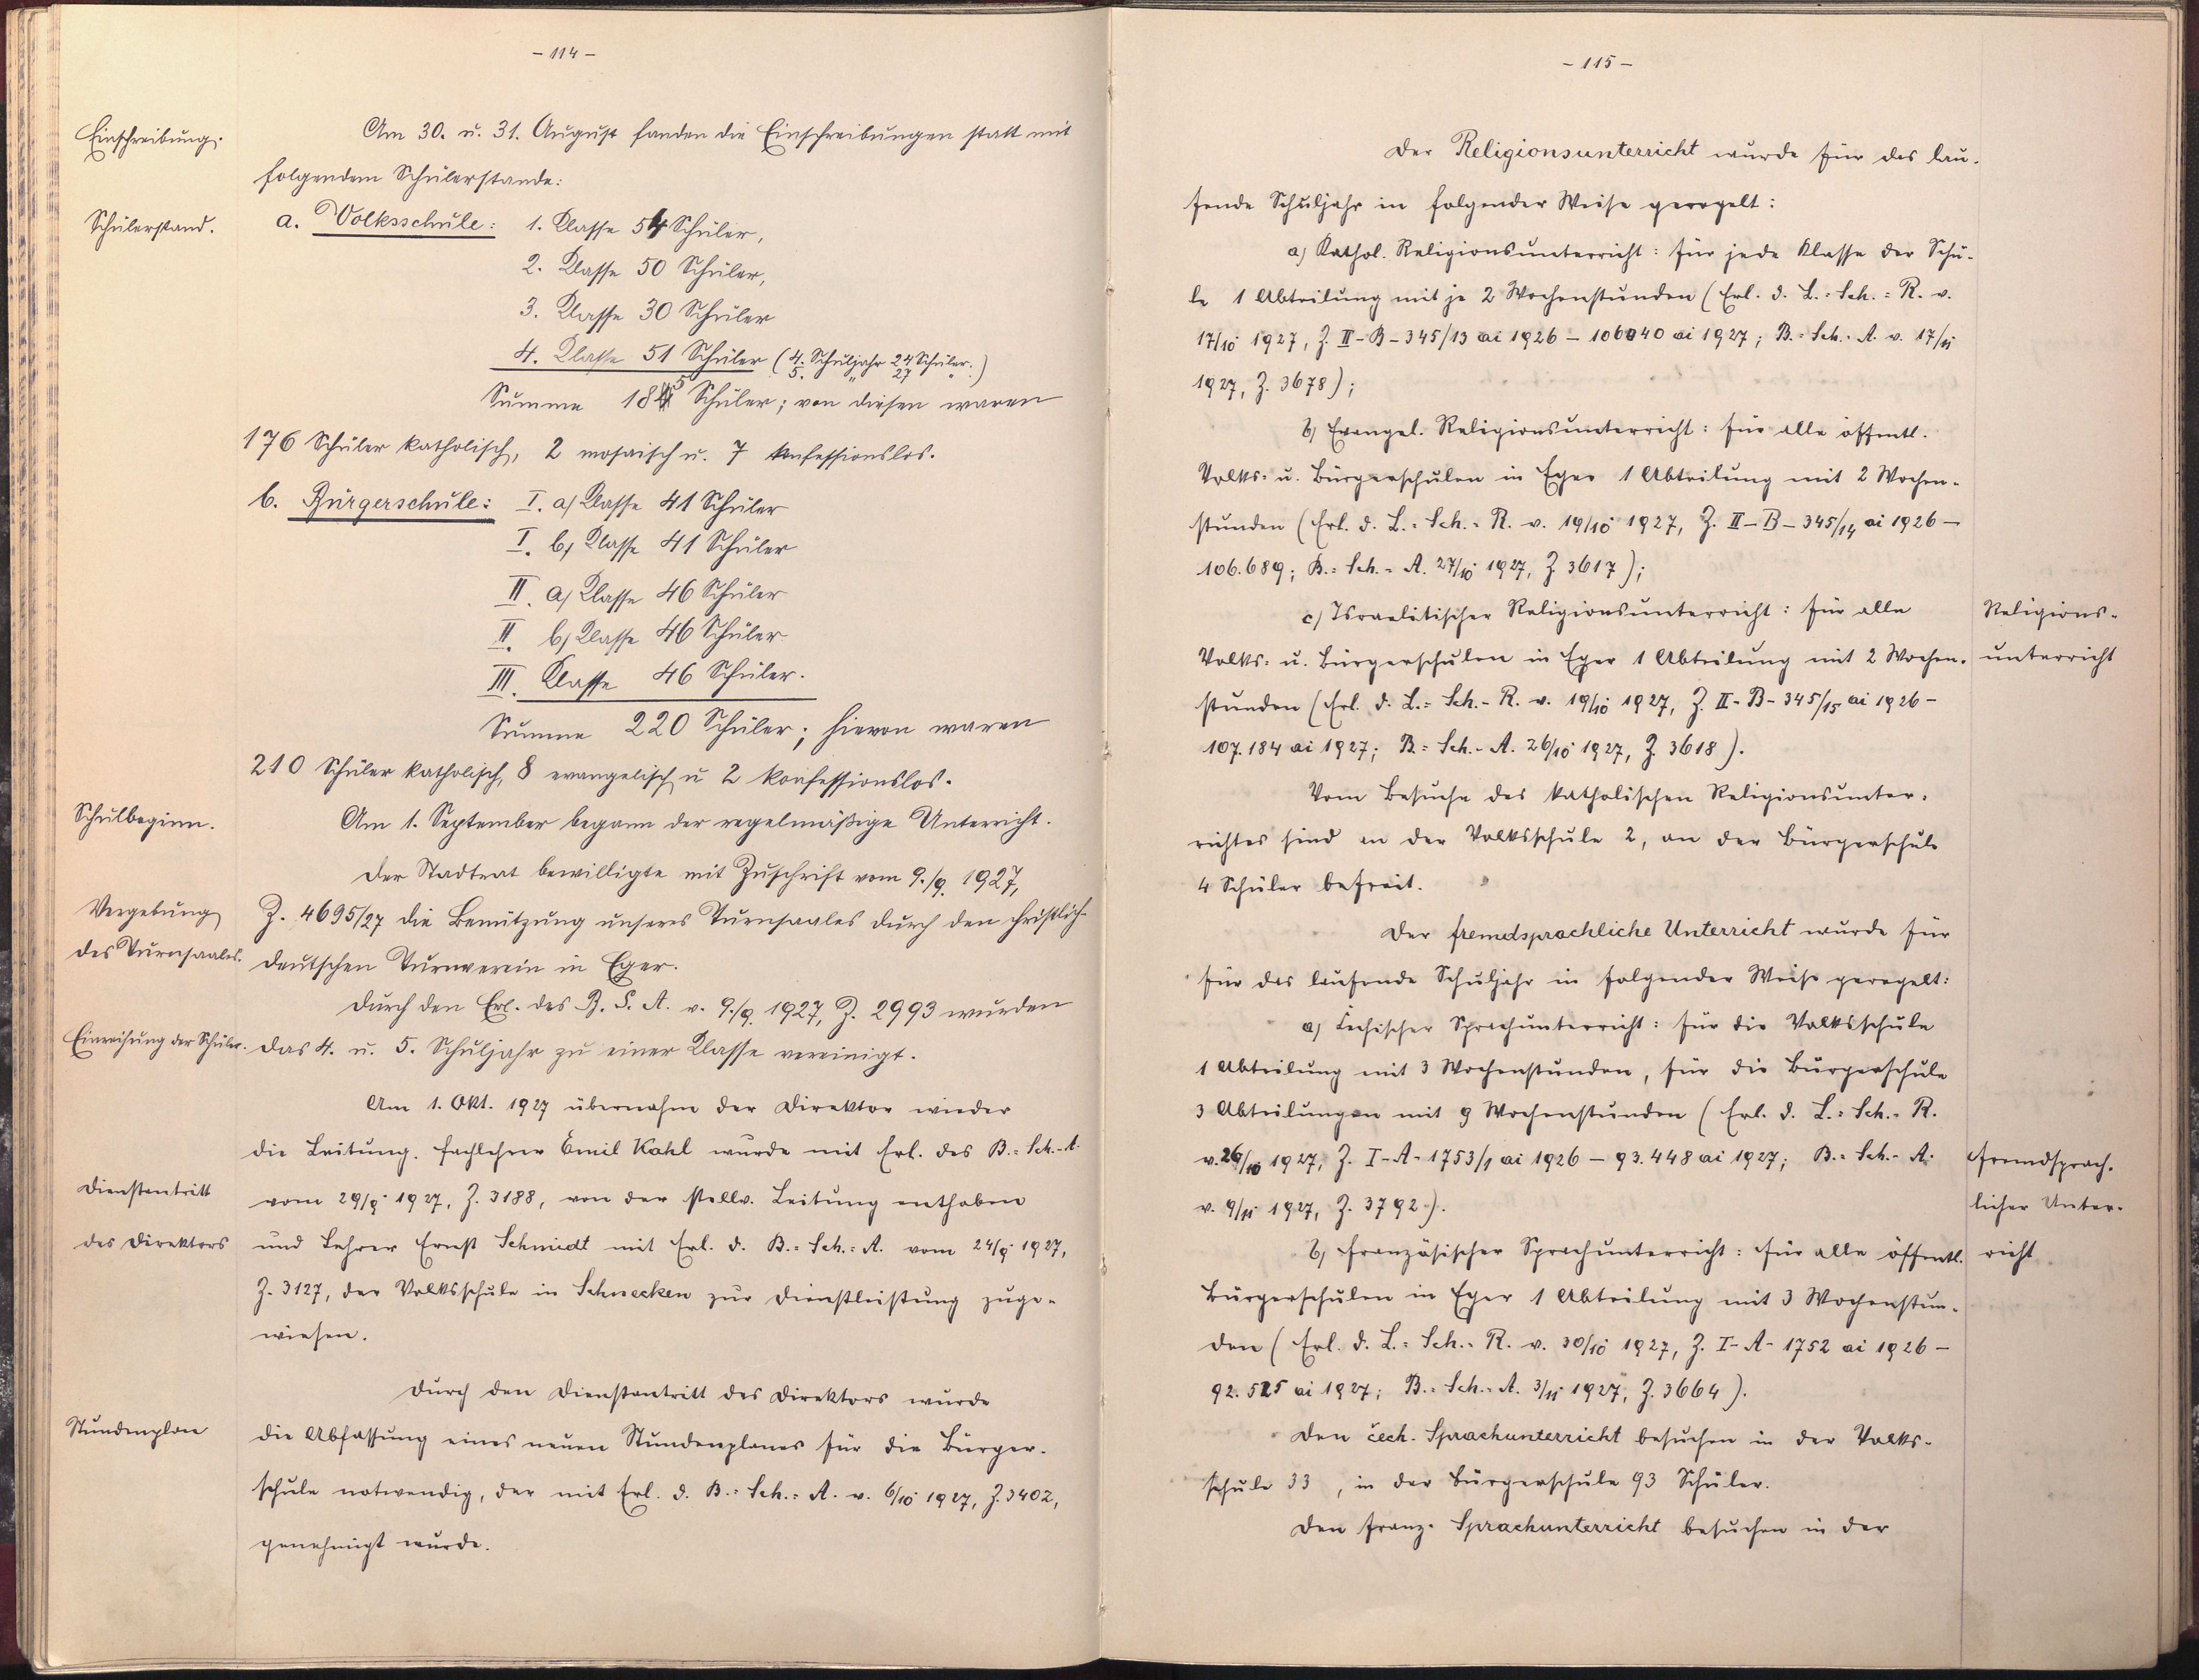 - 114 -
Einschreibung.
Am 30. u. 31. August fanden die Einschreibungen statt mit
folgendem Schülerstande:
Schülerstand.
a. Volksschule: 1. Klasse 54 Schüler,
2. Klasse 50 Schüler,
3. Klasse 30 Schüler
4. Klasse 51 Schüler (4. Schuljahr 24 Schüler.
5. " 27 " )
Summe 185 Schüler; von diesen waren
176 Schüler katholisch, 2 mosaisch u. 7 konfessionslos.
b. Bürgerschule: I. a) Klasse 41 Schüler
I. b) Klasse 41 Schüler
II. a) Klasse 46 Schüler
II. b) Klasse 46 Schüler
III. Klasse 46 Schüler.
Summe 220 Schüler; hievon waren
210 Schüler katholisch, 8 evangelisch u 2 konfessionslos.
Schulbeginn.
Am 1. September begann der regelmäßige Unterricht.
Der Stadtrat bewilligte mit Zuschrift vom 9./9. 1927,
Vergebung
Z. 4695/27 die Benützung unseres Turnsaales durch den christlich-
des Turnsaales.
deutschen Turnverein in Eger.
Durch den Erl. des B. S. A. v. 9./9. 1927, Z. 2993 wurden
Einreihung der Schüler.
das 4. u. 5. Schuljahr zu einer Klasse vereinigt.
Am 1. Okt. 1927 übernahm der Direktor wieder
die Leitung. Fachlehrer Emil Kahl wurde mit Erl. des B.=Sch.-A.
Dienstantritt
vom 29/9. 1927, Z. 3188, von der stellv. Leitung enthoben
des Direktors
und Lehrer Ernst Schmidt mit Erl. d. B.=Sch.=A. vom 24/9. 1927,
Z. 3127, der Volksschule in Schnecken zur Dienstleistung zuge-
wiesen.
Durch den Dienstantritt des Direktors wurde
Stundenplan
die Abfassung eines neuen Stundenplanes für die Bürger-
schule notwendig, der mit Erl. d. B.=Sch.=A. v. 6/10. 1927, Z. 3402,
genehmigt wurde.
- 115 -
Der Religionsunterricht wurde für das lau-
fende Schuljahr in folgender Weise geregelt:
a) Kathol. Religionsunterricht: Für jede Klasse der Schu-
le 1 Abteilung mit je 2 Wochenstunden (Erl. d. L.=Sch.=R. v.
17/10. 1927, Z. II-B-345/13 ai 1926 - 106040 ai 1927; B.=Sch.-A. v. 17/11.
1927, Z. 3678);
b) Evangel. Religionsunterricht: Für alle öffentl.
Volks- u. Bürgerschulen in Eger 1 Abteilung mit 2 Wochen-
stunden (Erl. d. L.=Sch.=R. v. 19/10. 1927, Z. II-B-345/14 ai 1926 -
106.689; B.=Sch.-A. 27/10. 1927, Z. 3617);
c) Israelitischer Religionsunterricht: Für alle
Religions-
Volks- u. Bürgerschulen in Eger 1 Abteilung mit 2 Wochen-
unterricht
stunden (Erl. d. L.=Sch.-R. v. 19/10. 1927, Z. II-B-345/15 ai 1926 -
107.184 ai 1927; B.=Sch.-A. 26/10. 1927, Z. 3618).
Vom Besuche des katholischen Religionsunter-
richtes sind an der Volksschule 2, an der Bürgerschule
4 Schüler befreit.
Der fremdsprachliche Unterricht wurde für
für das laufende Schuljahr in folgender Weise geregelt:
a) Čechischer Sprachunterricht: Für die Volksschule
1 Abteilung mit 3 Wochenstunden, für die Bürgerschule
3 Abteilungen mit 9 Wochenstunden (Erl. d. L.=Sch.-R.
v. 26/10. 1927, Z. I-A-1753/1 ai 1926 - 93.448 ai 1927; B.=Sch.-A.
Fremdsprach-
v. 9/11. 1927, Z. 3792).
licher Unter-
b) Französischer Sprachunterricht: Für alle öffentl.
richt
Bürgerschulen in Eger 1 Abteilung mit 3 Wochenstun-
den (Erl. d. L.=Sch.-R. v. 30/10. 1927, Z. I-A-1752 ai 1926 -
92.525 ai 1927; B.=Sch.-A. 3/11. 1927, Z. 3664).
Den čech. Sprachunterricht besuchen in der Volks-
schule 33, in der Bürgerschule 93 Schüler.
Den franz. Sprachunterricht besuchen in der